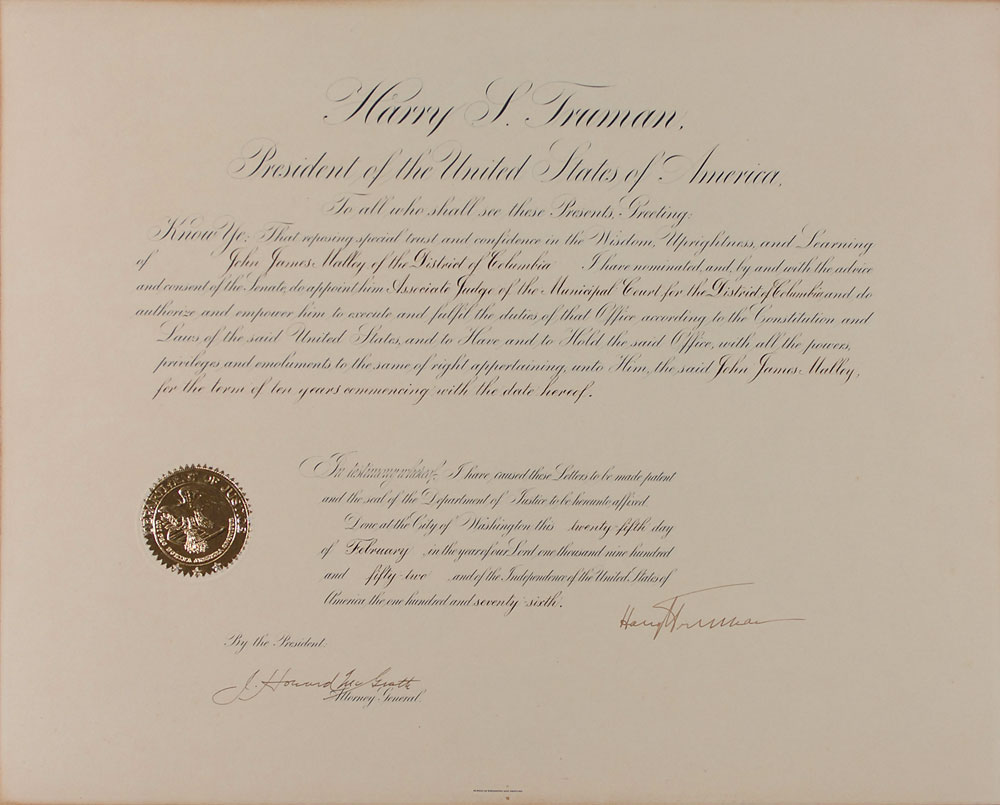 Harry S. Truman,
President of the United States of America,
To all who shall see these Presents, Greeting:
Know Ye: That reposing special trust and confidence in the Wisdom, Uprightness, and Learning
of John James Malley of the District of Columbia I have nominated, and, by and with the advice
and consent of the Senate, do appoint him Associate Judge of the Municipal Court for the District of Columbia and do
authorize and empower him to execute and fulfil the duties of that Office according to the Constitution and
Laws of the said United States, and to Have and to Hold the said Office, with all the powers,
privileges, and emoluments to the same of right appertaining, unto Him, the said John James Malley,
for the term of ten years commencing with the date hereof.
In testimony whereof, I have caused these Letters to be made patent
and the seal of the Department of Justice to be hereunto affixed.
Done at the City of Washington this twenty-fifth day
of February, in the year of our Lord one thousand nine hundred
and fifty-two and of the Independence of the United States of
America the one hundred and seventy-sixth.
Harry Truman
By the President:
J. Howard McGrath
Attorney General.